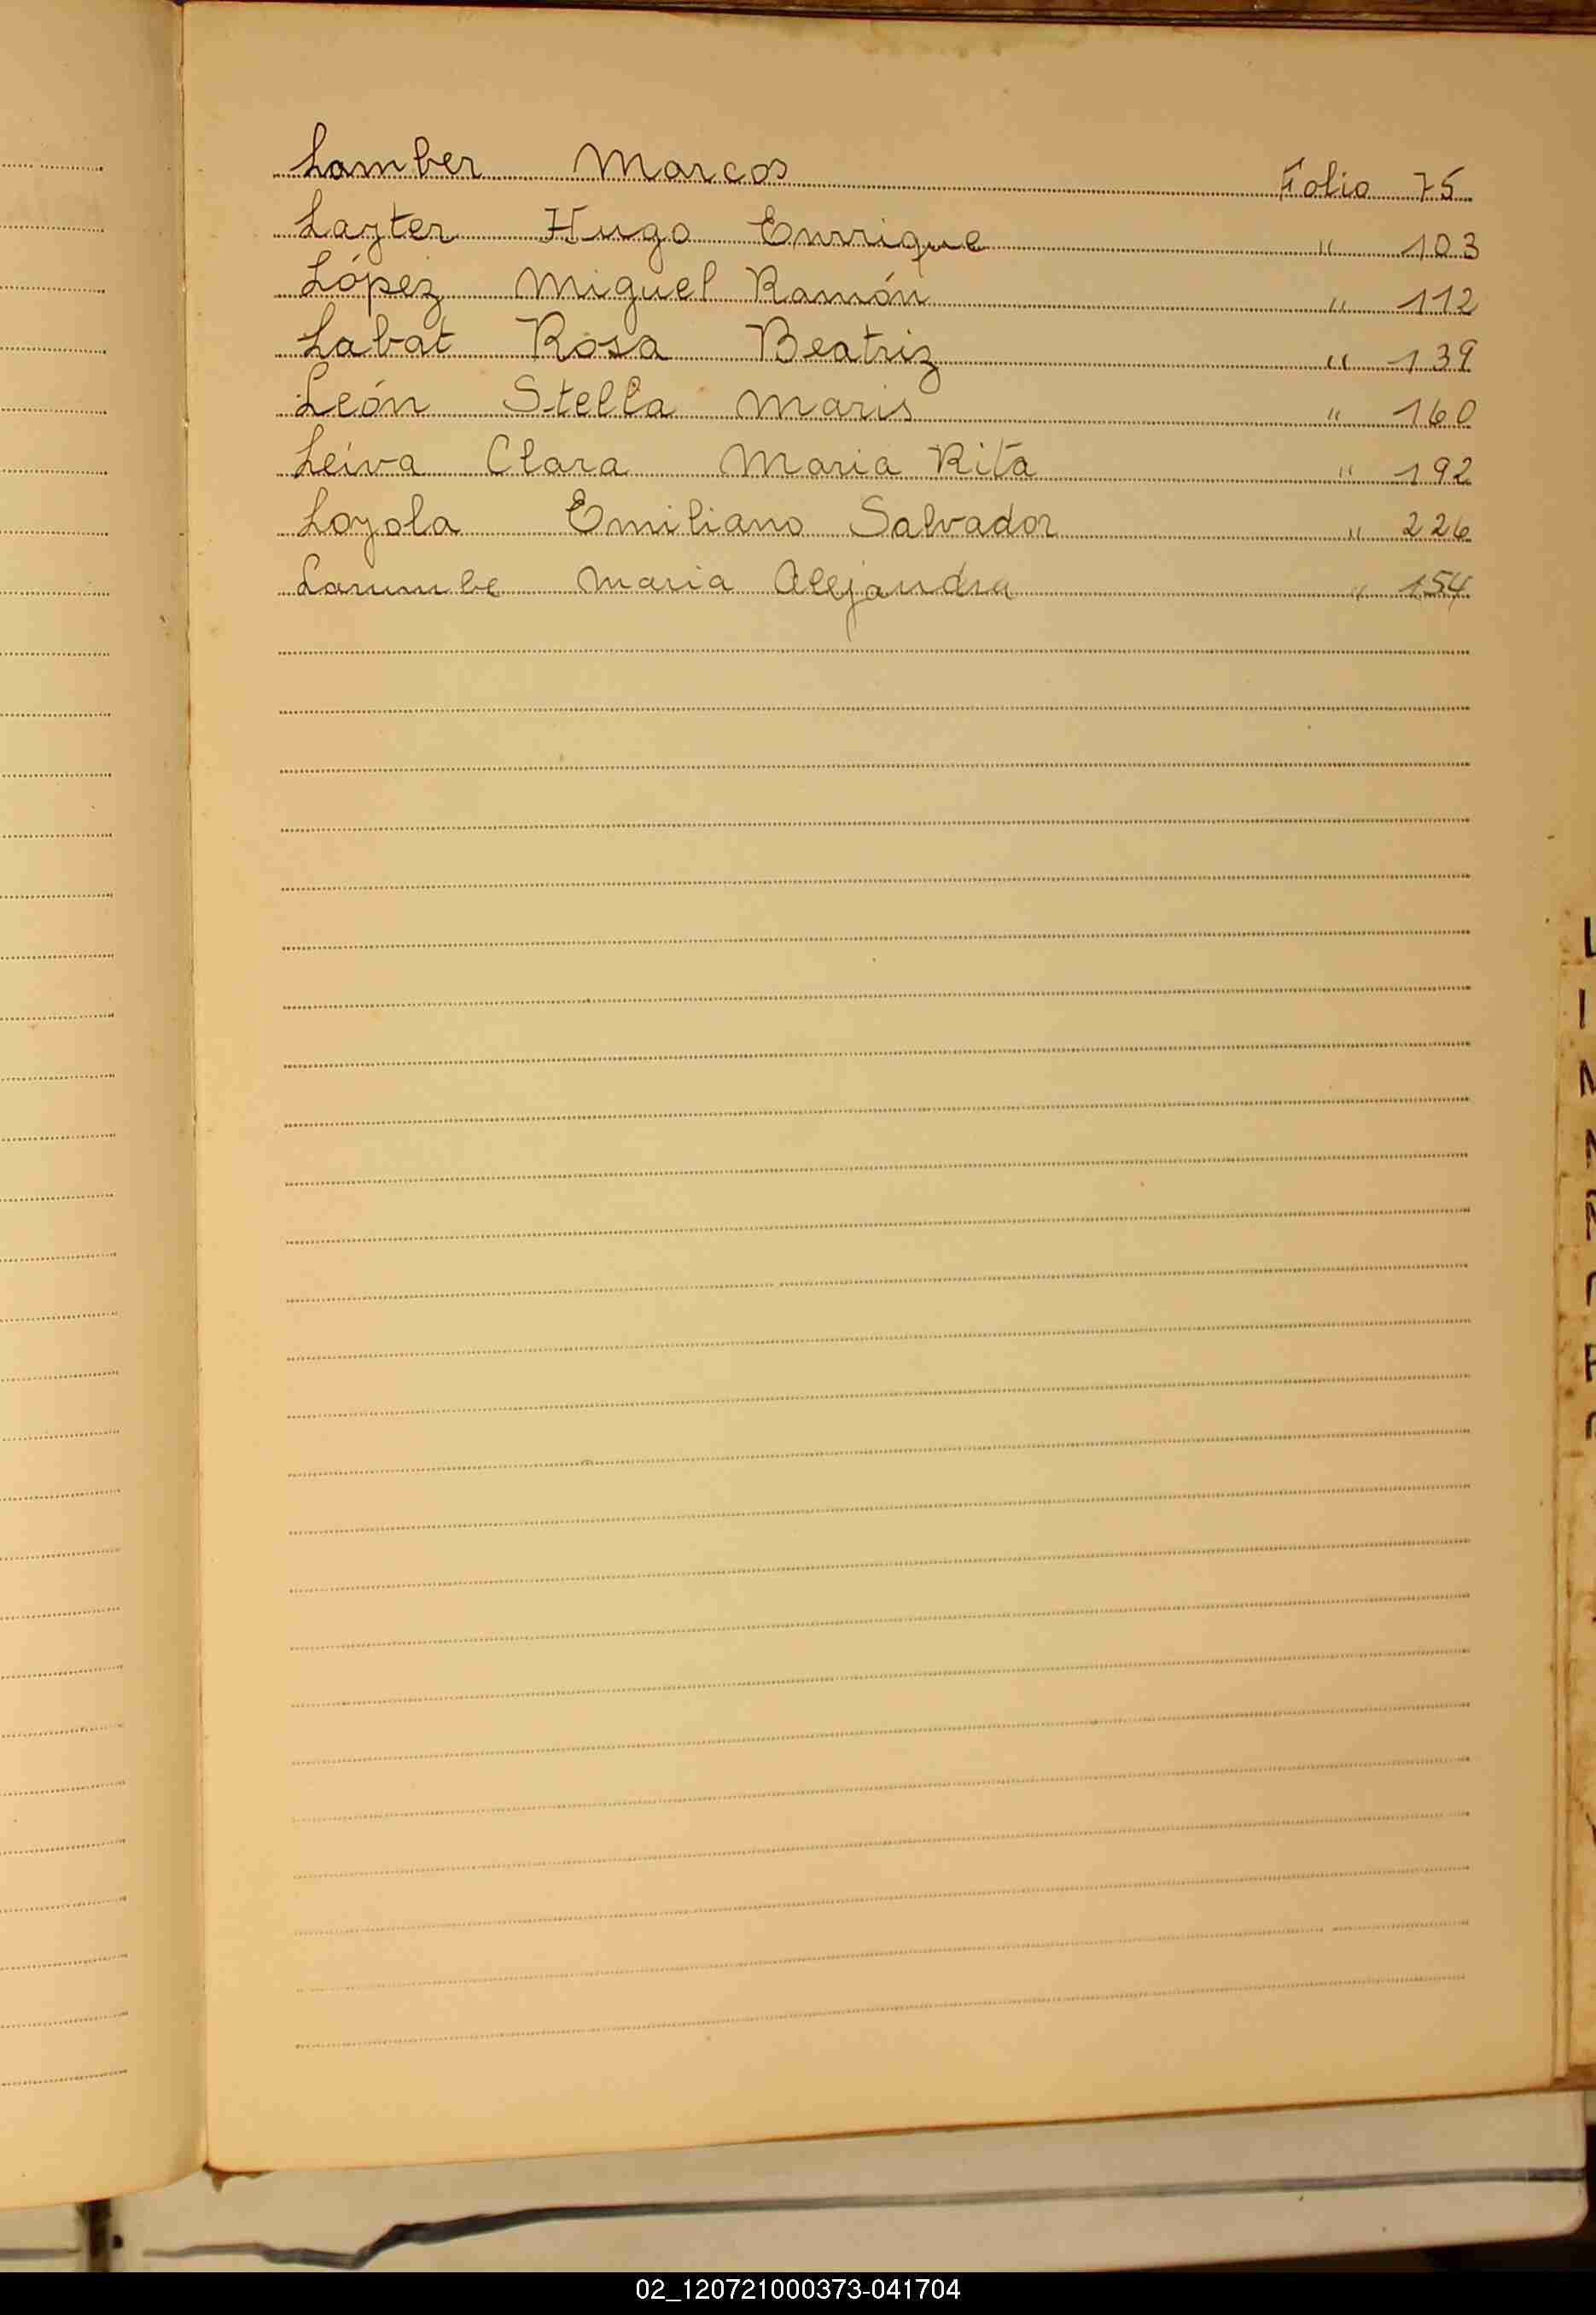 Lamber Marcos Folio 75
Layter Hugo Enrrique " 103
López Miguel Ramón " 112
Labat Rosa Beatriz " 139
León Stella Maris " 160
Leiva Clara Maria Rita " 192
Loyola Emiliano Salvador " 226
Larumbe Maria Alejandra " 154
L
I
M
N
Ñ
02_120721000373-041704